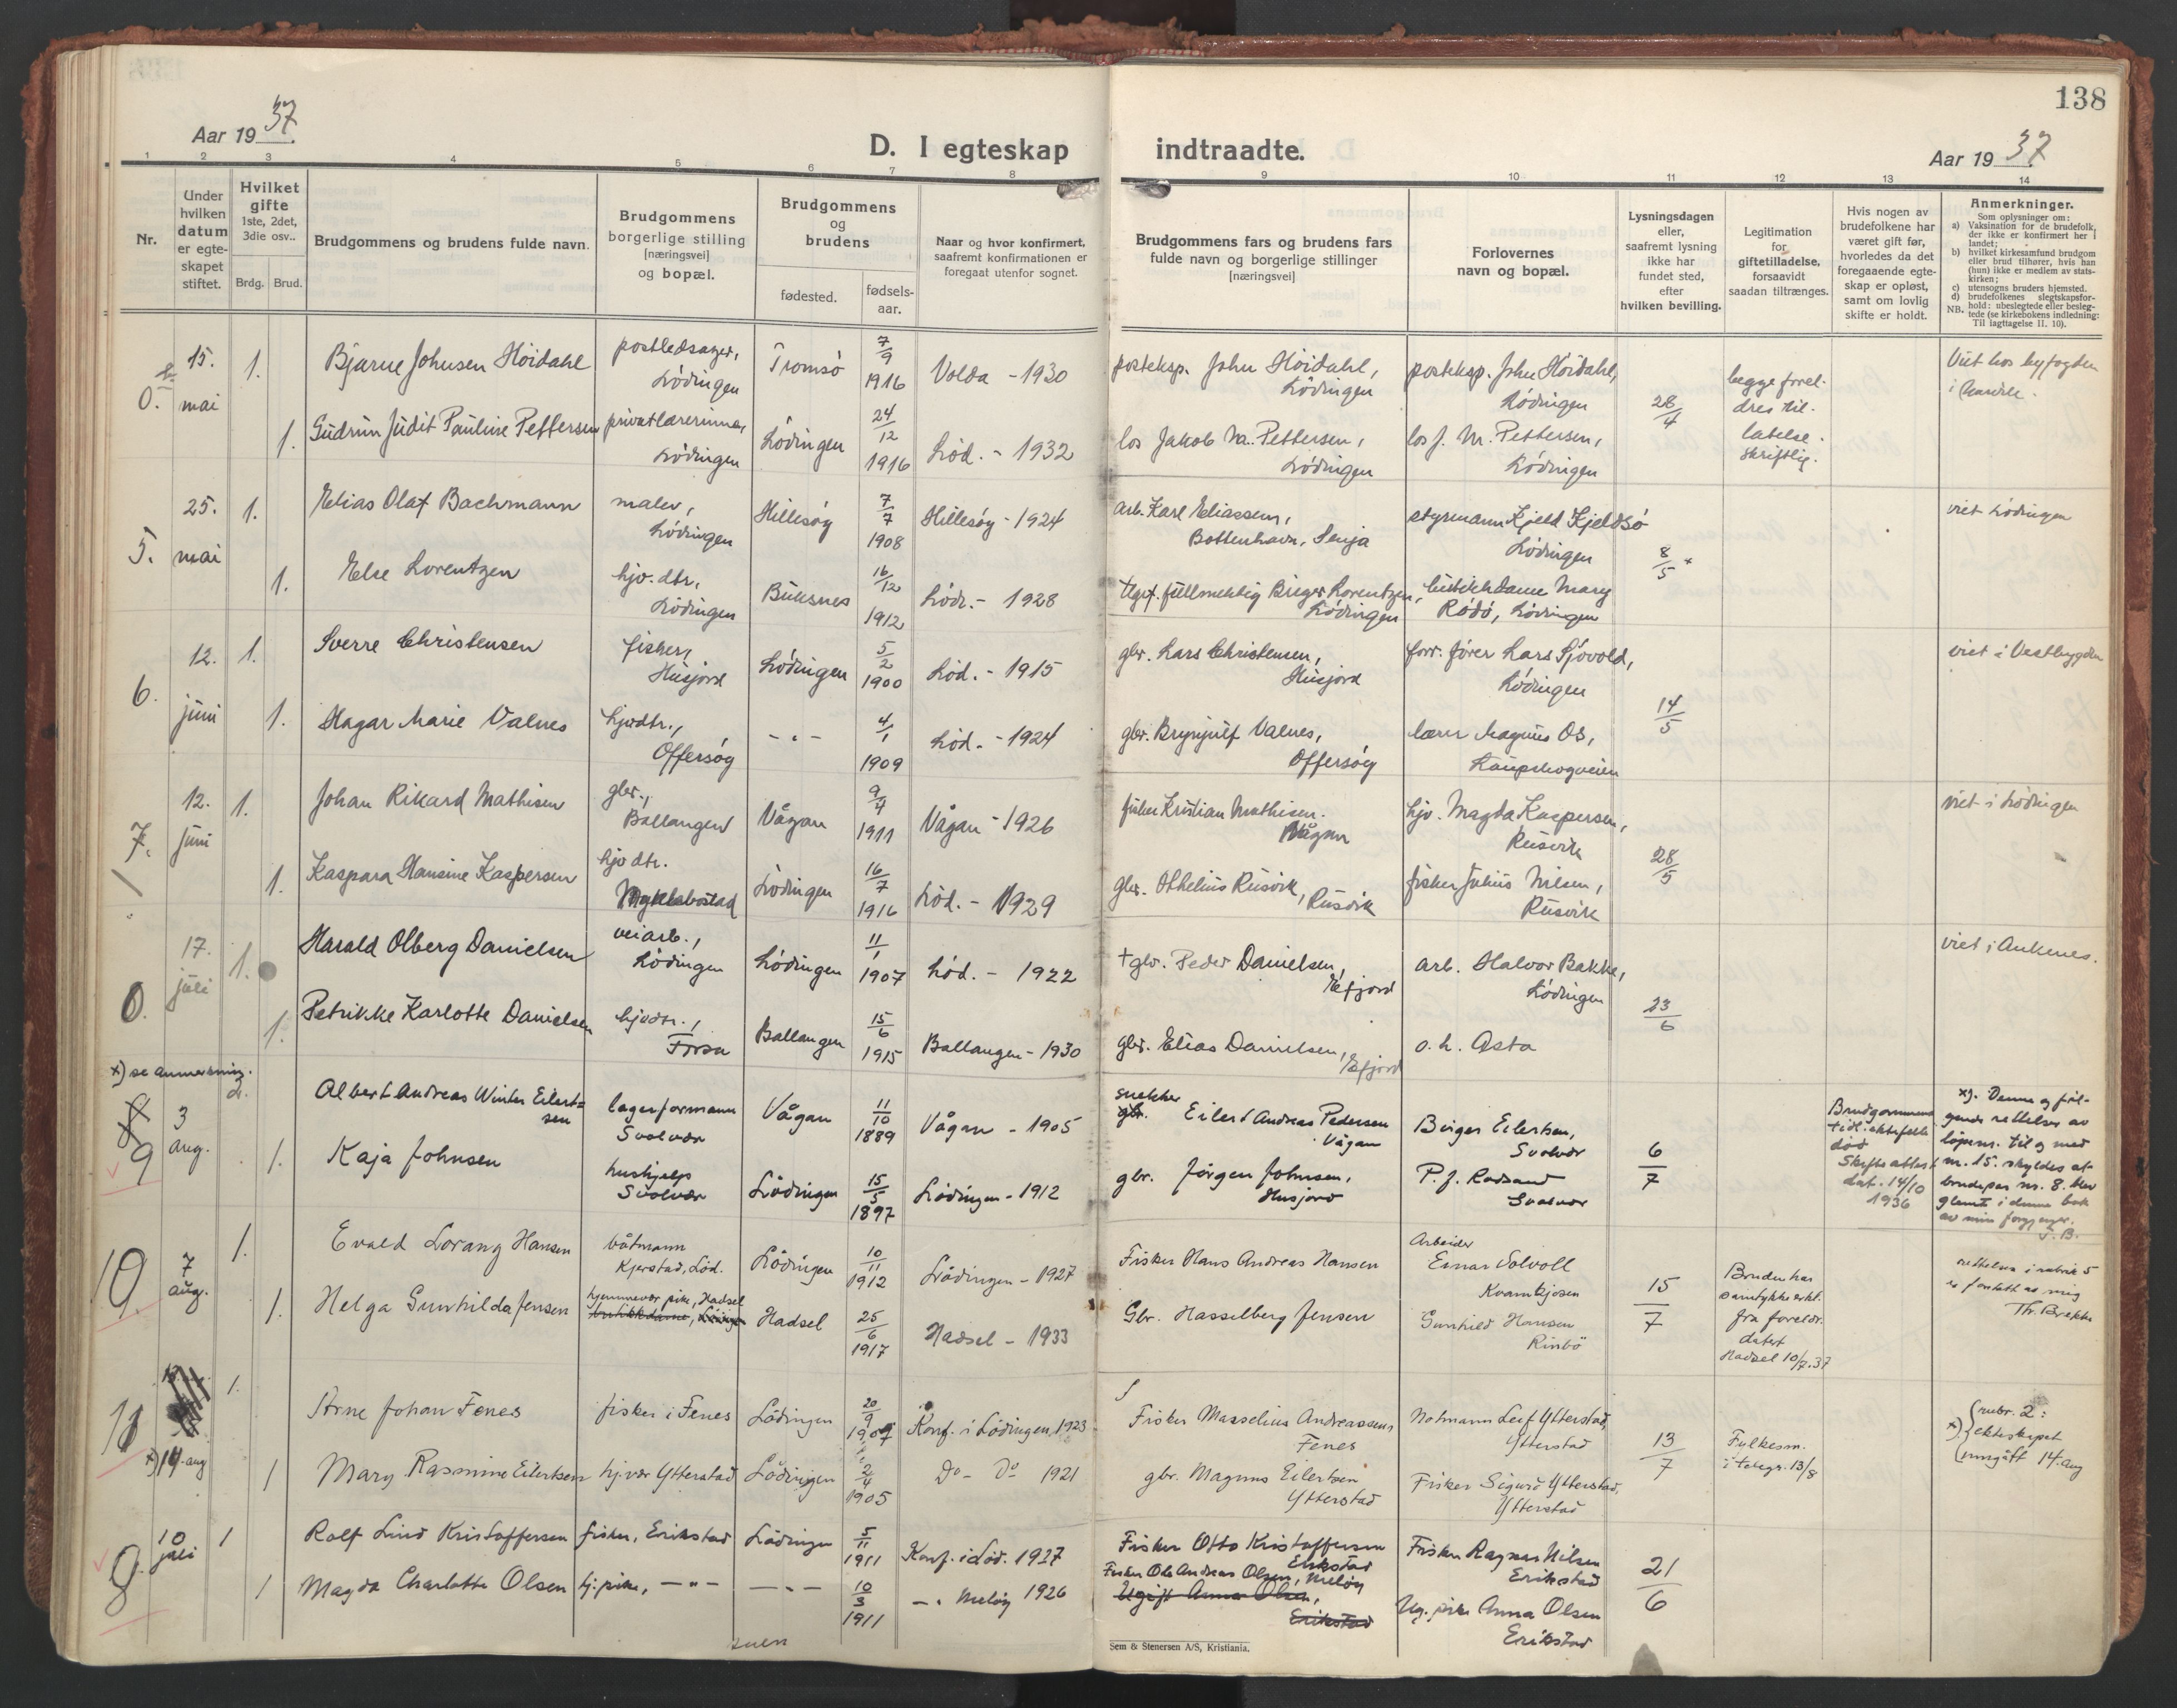 138
Aar 1937.
D. I egteskap indtraadte.
Aar 1937
1 2 3 4 5 6 7 8 9 10 11 12 13 14
Nr.
Under hvilken datum er egteskapet stiftet.
Hvilket gifte 1ste, 2det, 3die osv..
Brdg. Brud.
Brudgommens og brudens fulde navn.
Brudgommens borgerlige stilling [næringsvei] og bopæl.
Brudgommens og brudens
fødested.
fødselsaar.
Naar og hvor konfirmert, saafremt konfirmationen er foregaat utenfor sognet.
Brudgommens fars og brudens fars fulde navn og borgerlige stillinger [næringsvei]
Forlovernes navn og bopæl.
Lysningsdagen eller, saafremt lysning ikke har fundet sted, efter hvilken bevilling.
Legitimation for giftetilladelse, forsaavidt saadan tiltrænges.
Hvis nogen av brudefolkene har været gift før, hvorledes da det foregaaende egteskap er opløst, samt om lovlig skifte er holdt.
Anmerkninger.
Som oplysninger om:
a) Vaksination for de brudefolk, der ikke er konfirmert her i landet;
b) hvilket kirkesamfund brudgom eller brud tilhører, hvis han (hun) ikke er medlem av statskirken;
c) utensogns bruders hjemsted.
d) brudefolkenes slegtskapsforhold: ubeslegtede eller beslegtede (se kirkebokens indledning: Til iagttagelse II. 10).
NB.
0. 15. mai 1. Bjarne Johnsen Höidahl postledsager, Lödingen Tromsö 7/9 1916 Volda - 1930 posteksp. John Höidahl, Lödingen posteksp. John Höidahl, Lödingen 28/4 begge foreldres tillatelse. skriftlig. Viet hos byfogden i
1. Gudrun Judit Pauline Pettersen privatlærerinne, Lödingen Lödingen 24/12 1916 Löd. - 1932 los Jakob M. Pettersen, Lödingen los J. M. Pettersen, Lödingen
5. 25. mai 1. Elias Olaf Bachmann maler, Lödingen Hillesöy 7/7 1908 Hillesöy - 1924 arb. Karl Eliassen, Bottenhavn, Senja styrmann Kjeld Kjeldsö Lödingen 8/5 viet Lödingen
1. Else Lorentzen hjv. dtr, Lödingen Buksnes 16/12 1912 Löd. - 1928 tlgrf. fullmektig Birger Lorentzen, Lödingen butikkdame Mary Rödö, Lödingen
6. 12. juni 1. Sverre Christensen fisker, Husjord Lödingen 5/2 1900 Löd. - 1915 gbr. Lars Christensen, Husjord forr. förer Lars Sjövold, Lödingen 14/5 viet i Vestbygden
1. Hagar Marie Valnes hjvdtr., Offersöy - " - 4/1 1909 Löd. - 1924 gbr. Brynjulf Valnes, Offersöy lærer Magnus Os, Kaupskogveien
7. 12. juni 1. Johan Rikard Mathisen gbr., Ballangen Vågan 9/4 1911 Vågan - 1926 fisker Kristian Mathisen. Vågan hjv. Magda Kaspersen, Rusvik 28/5 viet i Lödingen
1. Kaspara Hansine Kaspersen hjv dtr. Myklebostad Lödingen 16/7 1916 Löd. - 1929 gbr. Othelius Rusvik, Rusvik fisker Julius Nilsen, Rusvik
0. 17. juli 1. Harald Olberg Danielsen veiarb., Lödingen Lödingen 11/1 1907 Löd. - 1922 + gbr. Peder Danielsen, Efjord arb. Halvor Bakke, Lödingen 23/6 viet i Ankenes.
1. Petrikke Karlotte Danielsen hjvdtr., Forsa Ballangen 15/6 1915 Ballangen - 1930 gbr. Elias Danielsen, Efjord o. h. Asta
x) se anmerkning.
9 3 aug. 2. Albert Andreas Winter Eilertsen lagerformann Svolvær Vågan 11/10 1889 Vågan - 1905 snekker gbr. Eilert Andreas Pedersen Vågan Birger Eilertsen, Svolvær 6/7 Brudgommens tidl. ektefelle död Skifteattest dat. 14/10 1936 x). Denne og fölgende rettelser av löpenr. til og med nr. 15. skyldes at brudepar nr. 8. blev glemt i denne bok av min forgjenger. T. B.
1. Kaja Johnsen hushjelp Svolvær Lödingen 15/5 1897 Lödingen - 1912 gbr. Jörgen Johnsen, Husjord P. J. Rødsand Svolvær
10. 7 aug. 1. Evald Lorang Hansen båtmann Kjerstad, Löd. Lödingen 10/11 1912 Lödingen - 1927 Fisker Hans Andreas Hansen Arbeider Einar Solvoll Kvannkjosen 15/7 Bruden har samtykke erkl. fra foreldr. datert Hadsel 10/7.37 rettelsen i rubrik 5 er foretatt av mig Thr. Brekke
1. Helga Gunhilda Jensen hjemmevær. pike, Hadsel butikkdame, Lödingen Hadsel 25/6 1917 Hadsel - 1933 Gbr. Hasselberg Jensen Gunhild Hansen Rinbö
11 x) 14. aug 1. Arne Johan Fenes fisker i Fenes Lödingen 20/9 1907 Konf. i Lödingen 1923 Fisker Masselius Andreassen, Fenes Notmann Leif Ytterstad, Ytterstad 13/7 Fylkesm. i telegr. 13/8 x) rubr. 2: ekteskapet inngått 14. aug
1 Mary Rasmine Eilertsen hj.vær Ytterstad Lödingen 2/4 1905 Do - Do 1921 gbr. Magnus Eilertsen Ytterstad Fisker Sigurd Ytterstad, Ytterstad
8. 10 juli 1 Rolf Lind Kristoffersen fisker, Erikstad Lödingen 5/11 1911 Konf. i Löd. 1927 Fisker Otto Kristoffersen Erikstad Fisker Ragnar Nilsen Erikstad 21/6
1 Magda Charlotte Olsen hj. pike, - " - - " - 10/3 1911 - " Meløy 1926 Fisker Ole Andreas Olsen, Meløy Ugift Anna Olsen, Erikstad Ug. pike Anna Olsen Erikstad
Sem & Stenersen A/S, Kristiania.